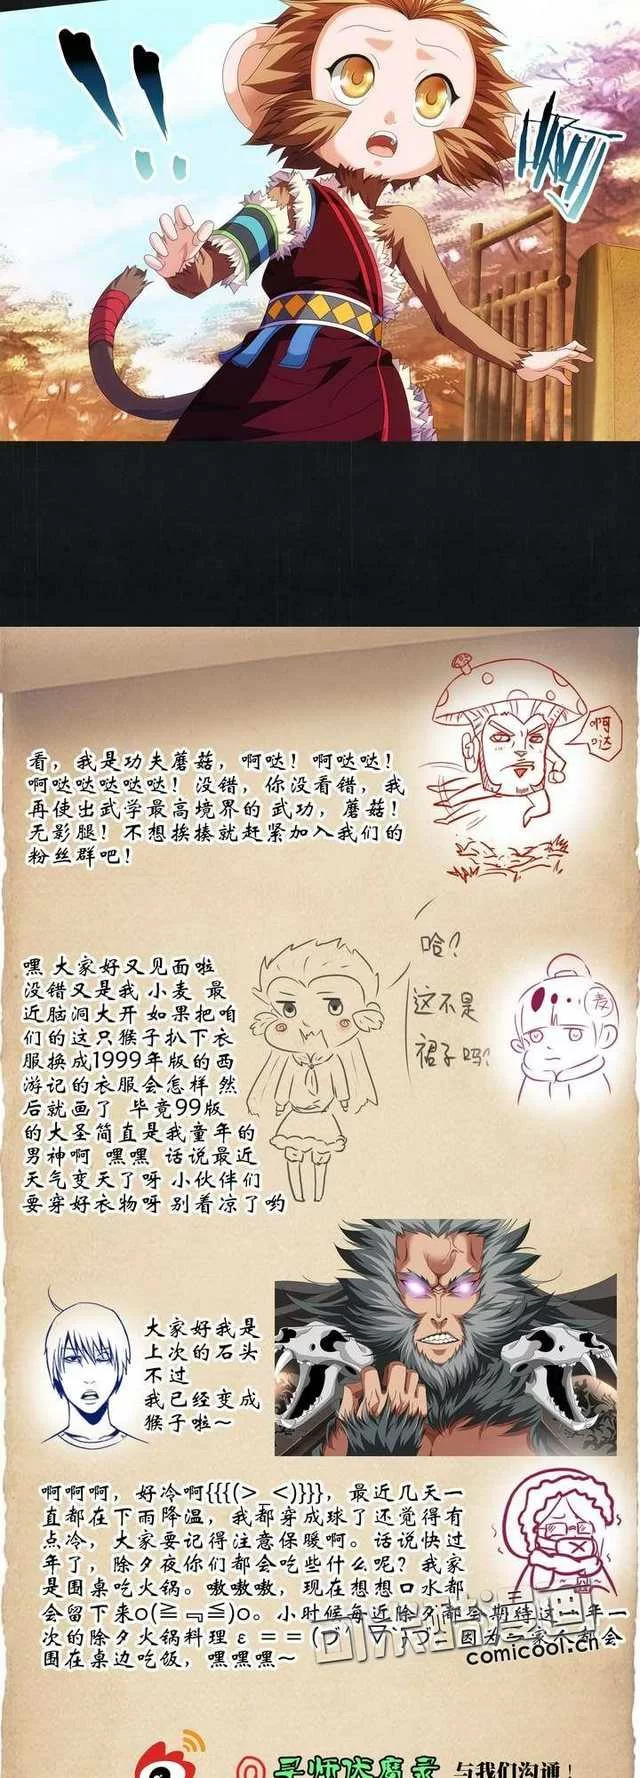 啊哒
看，我是功夫蘑菇，啊哒！啊哒哒！
啊哒哒哒哒哒！没错，你没看错，我
再使出武学最高境界的 武功，蘑菇！
无影腿！不想挨揍就赶紧加入我们的
粉丝群吧！
哈？
这不是
裙子吗？
麦
嘿 大家好又见面啦
没错又是我 小麦 最
近脑洞大开 如果把咱
们的这只猴子扒下衣
服换成1999年版的西
游记的衣服会怎样 然
后就画了 毕竟99版
的大圣简直是我童年的
男神啊 嘿嘿 话说最近
天气变天了呀 小伙伴们
要穿好衣物呀 别着凉了哟
大家好我是
上次的石头
不过
我已经变成
猴子啦～
啊啊啊，好冷啊{{{(>_<)}}}，最近几天一
直都在下雨降温，我都穿成球了还觉得有
点冷，大家要记得注意保暖啊。话说快过
年了，除夕夜你们都会吃些什么呢？我家
是围桌吃火锅。嗷嗷嗷，现在想想口水都
会留下来o(≧﹃≦)o。小时候每近除夕都会期待这一年一
次的除夕火锅料理ε＝＝(づ′▽`)づ 因为一家人都会
围在桌边吃饭，嘿嘿嘿～
comicool.cn
@寻师伏魔录 与我们沟通！